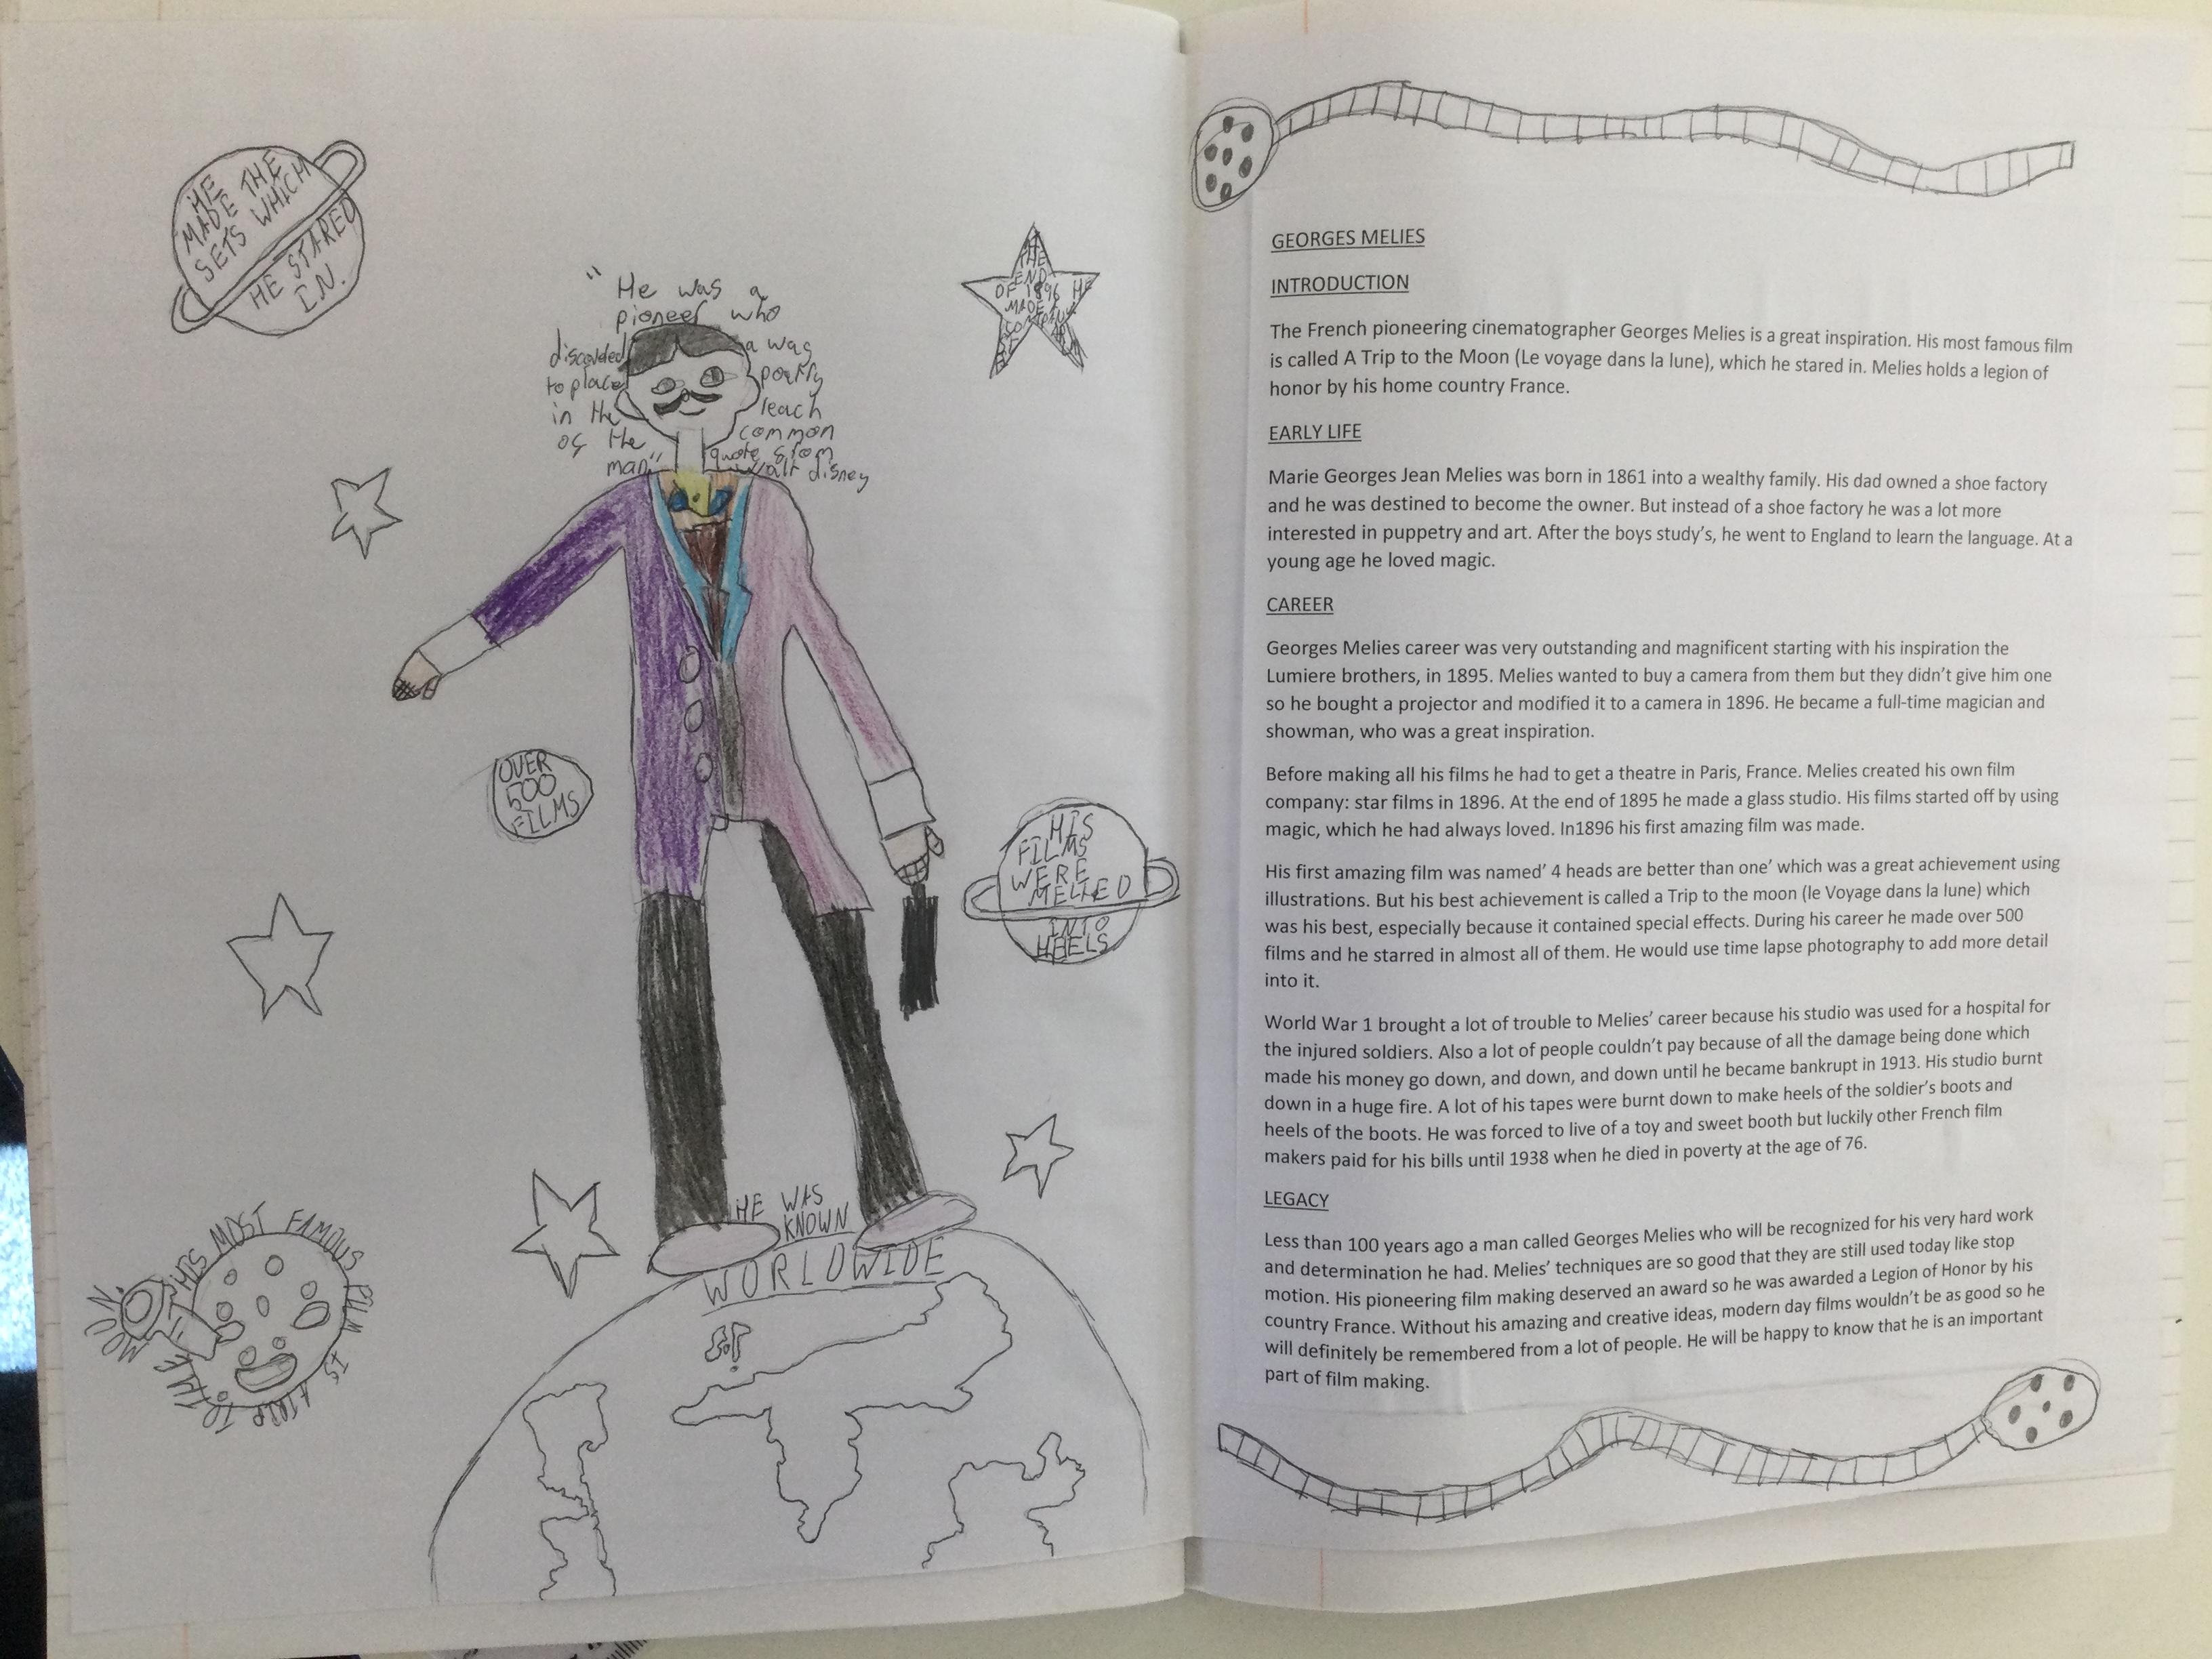 HE
MADE THE
SETS WHICH
HE STARED
IN.
" He was a
pioneer who
discovded a was
to place poetry
in the reach
of the common
man" quote from
walt disney
THE
END
OF 1896 HE
MADE A
COMPANY
OVER
500
FILMS
HIS
FILMS
WERE
MELTED
INTO
HEELS
HE WAS
KNOWN
WORLDWIDE
HIS MOST FAMOUS FILM IS A TRIP TO THE MOON
GEORGES MELIES
INTRODUCTION
The French pioneering cinematographer Georges Melies is a great inspiration. His most famous film
is called A Trip to the Moon (Le voyage dans la lune), which he stared in. Melies holds a legion of
honor by his home country France.
EARLY LIFE
Marie Georges Jean Melies was born in 1861 into a wealthy family. His dad owned a shoe factory
and he was destined to become the owner. But instead of a shoe factory he was a lot more
interested in puppetry and art. After the boys study's, he went to England to learn the language. At a
young age he loved magic.
CAREER
Georges Melies career was very outstanding and magnificent starting with his inspiration the
Lumiere brothers, in 1895. Melies wanted to buy a camera from them but they didn't give him one
so he bought a projector and modified it to a camera in 1896. He became a full-time magician and
showman, who was a great inspiration.
Before making all his films he had to get a theatre in Paris, France. Melies created his own film
company: star films in 1896. At the end of 1895 he made a glass studio. His films started off by using
magic, which he had always loved. In1896 his first amazing film was made.
His first amazing film was named' 4 heads are better than one' which was a great achievement using
illustrations. But his best achievement is called a Trip to the moon (le Voyage dans la lune) which
was his best, especially because it contained special effects. During his career he made over 500
films and he starred in almost all of them. He would use time lapse photography to add more detail
into it.
World War 1 brought a lot of trouble to Melies' career because his studio was used for a hospital for
the injured soldiers. Also a lot of people couldn't pay because of all the damage being done which
made his money go down, and down, and down until he became bankrupt in 1913. His studio burnt
down in a huge fire. A lot of his tapes were burnt down to make heels of the soldier's boots and
heels of the boots. He was forced to live of a toy and sweet booth but luckily other French film
makers paid for his bills until 1938 when he died in poverty at the age of 76.
LEGACY
Less than 100 years ago a man called Georges Melies who will be recognized for his very hard work
and determination he had. Melies' techniques are so good that they are still used today like stop
motion. His pioneering film making deserved an award so he was awarded a Legion of Honor by his
country France. Without his amazing and creative ideas, modern day films wouldn't be as good so he
will definitely be remembered from a lot of people. He will be happy to know that he is an important
part of film making.